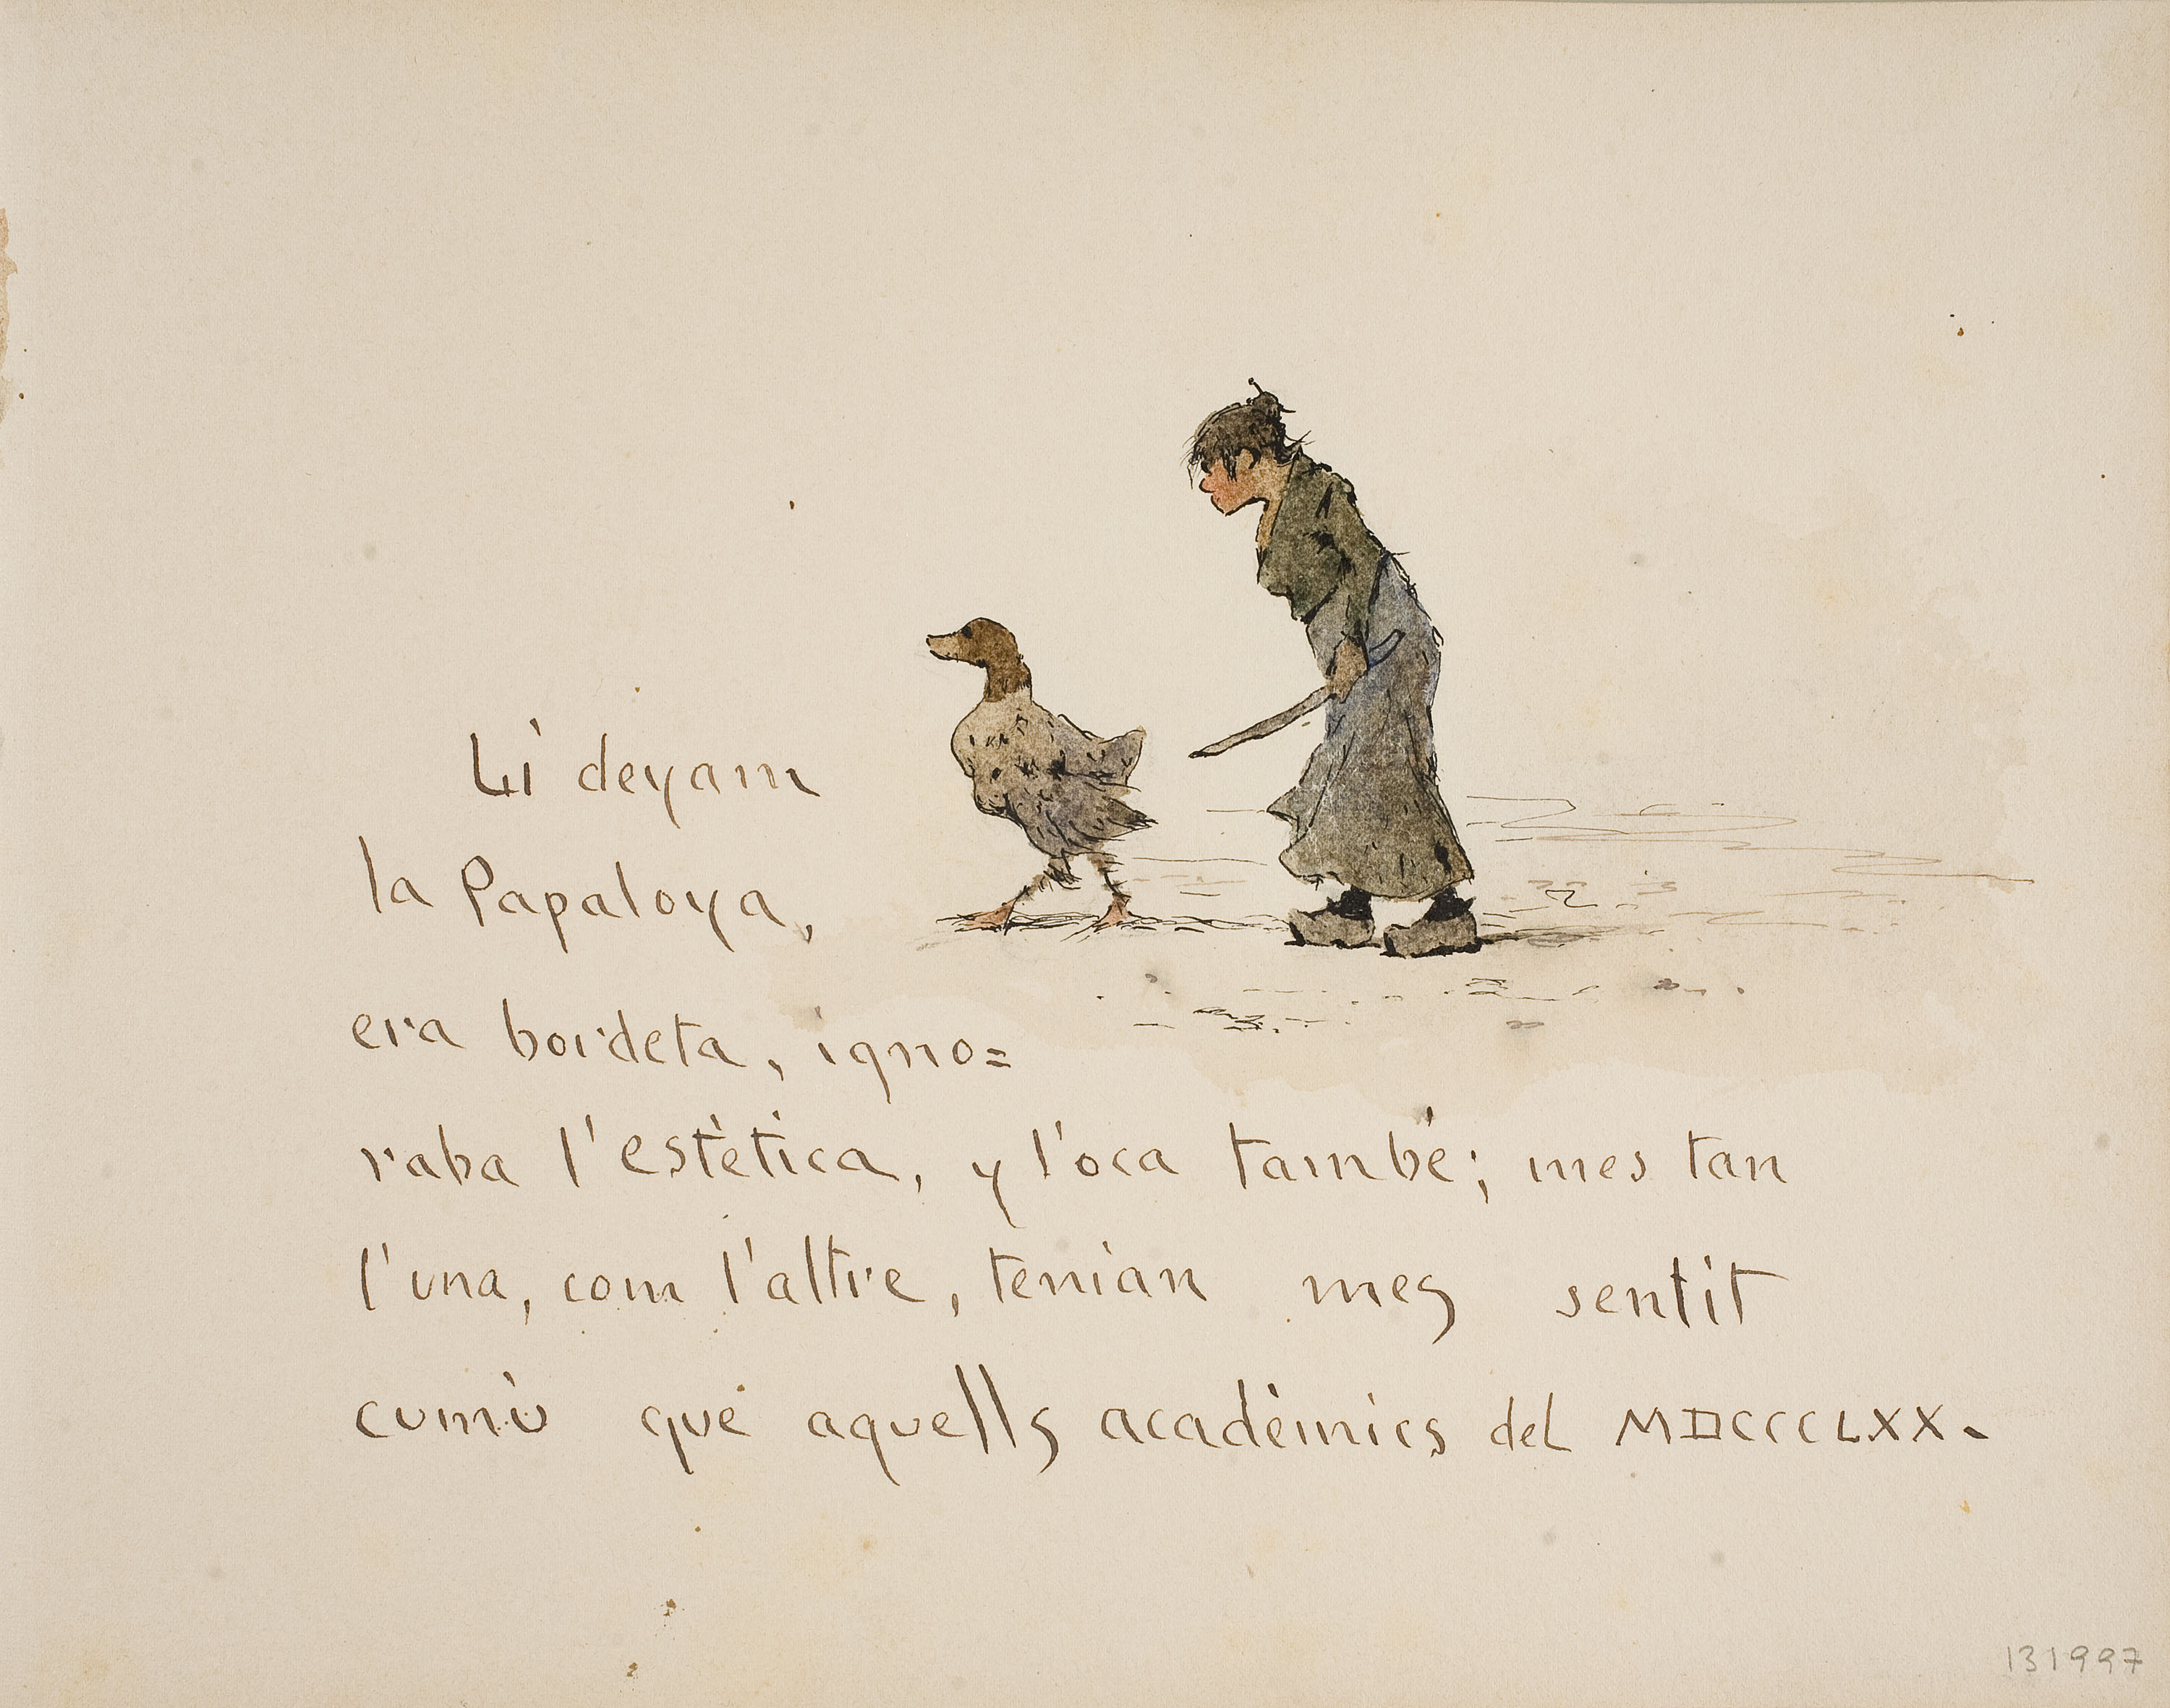 Li deyam
la Papaloya,
era bordeta, igno=
raba l'estètica, y l'oca també; mes tan
l'una, com l'altre, tenian mes sentit
cumù que aquells acadèmics del MDCCCLXX.
131997